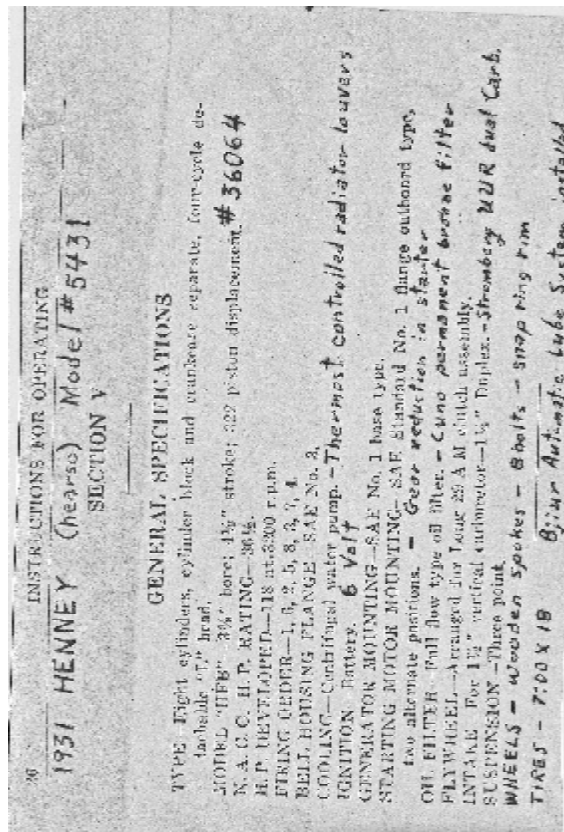 26 INSTRUCTIONS FOR OPERATING
1931 HENNEY (hearse) Model # 5431
SECTION V
GENERAL SPECIFICATIONS
TYPE—Eight cylinders, cylinder block and crankcase separate, four-cycle de-
tachable "L" head.
MODEL "HFB"—3⅜" bore; 4½" stroke; 322 piston displacement. # 36064
N. A. C. C. H.P. RATING—36½.
H.P. DEVELOPED—118 at 3200 r.p.m.
FIRING ORDER—1, 6, 2, 5, 8, 3, 7, 4.
BELL HOUSING FLANGE—SAE No. 3.
COOLING—Centrifugal water pump. - Thermost controlled radiator louvers
IGNITION Battery. 6 Volt
GENERATOR MOUNTING—SAE No. 1 base type.
STARTING MOTOR MOUNTING—SAE Standard No. 1 flange outboard type,
two alternate positions. - Gear reduction in starter
OIL FILTER—Full flow type oil filter. - Cuno permanent bronze filter
FLYWHEEL—Arranged for Long 29 A M clutch assembly.
INTAKE For 1½" vertical carburetor—1¼" Duplex. - Stromberg UUR dual Carb.
SUSPENSION—Three point.
WHEELS - Wooden spokes - 8 bolts - snap ring rim
TIRES - 7:00 X 18 Bijur Automatic Lube System installed